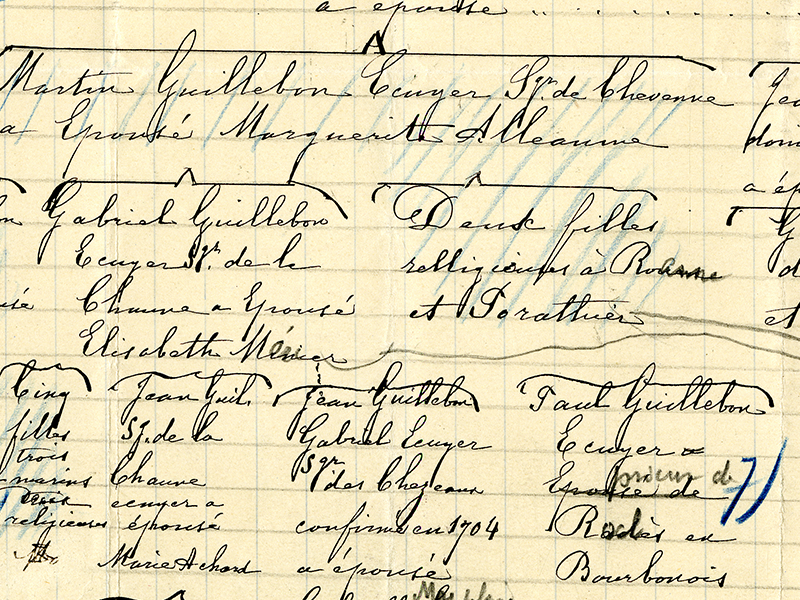 a épousé
A
Martin Guillebon Ecuyer Sgr. de Chevenne
a Epousé Marguerite Alleaume
a ép
Gabriel Guillebon
Ecuyer Sgr. de la
Chauve a Epousé
Elisabeth
Deux filles
relligieuses à Roanne
et
et
Cinq
filles
trois
religieuses
Jean Guil.
Sg. de la
Chauve
ecuyer a
épousé
Marie Achard
Jean Guillebon
Gabriel Ecuyer
Sgr
des Chezeaux
confirmé en 1704
a épousé
Paul Guillebon
Ecuyer
prieur de
Epouse de
7)
en
Bourbonois